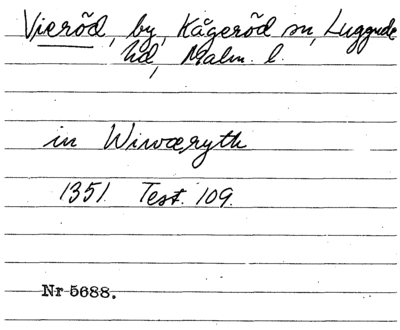 Vieröd, by, Kågeröd sn, Luggude
hd, Malm. l.
in Wiwæryth
1351. Test. 109.
Nr 5688.